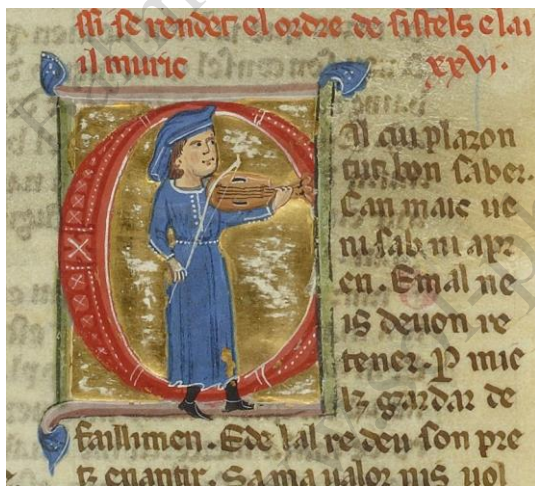 ssi se rendet el ordre de sistels e lai
il muric xxvi.
Cil cui plazon
tut bon saber.
ni sab ni apr
en. E mal ne
is deuon re
tener. P mie
lz gardar de
faillimen. E de lal re deu son pre
tz enantir. Sa ma ualor nis uol